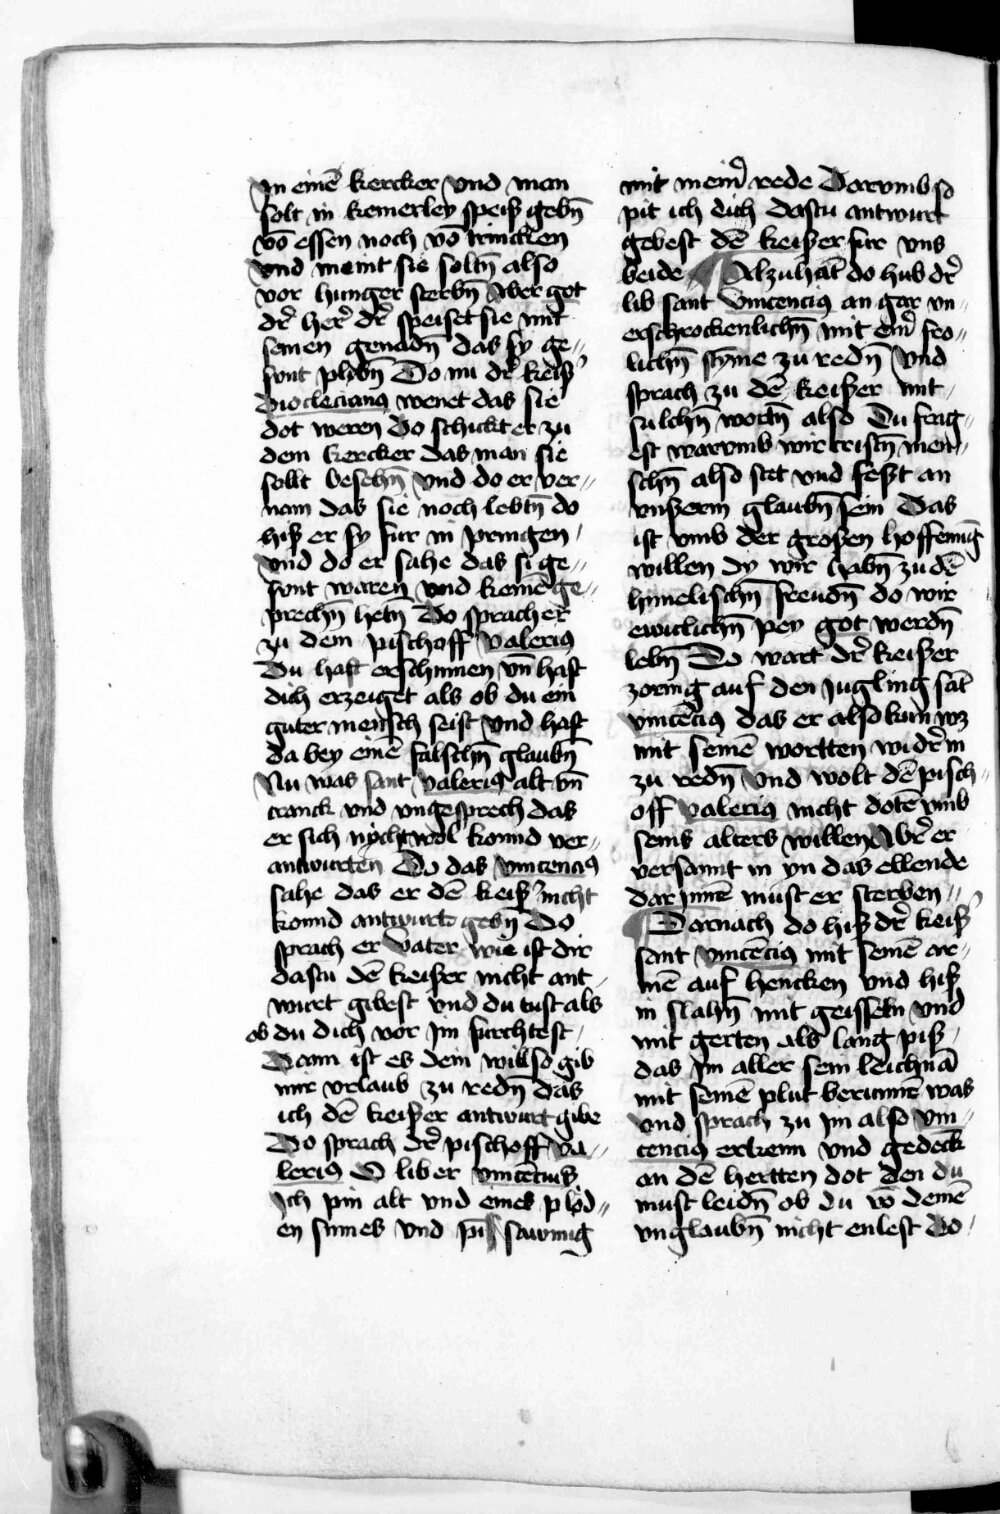 In einē kercker vnd man
solt in keinerley speiß gebn̄
vō essen noch vō trincken
vnd meint sie soltn̄ also
vor hunger sterbn̄ Aber got
dr̄ her̄ dr̄ speiset sie mit
seinen genadn̄ das sy ge-
sunt plibn̄ Do nu dr̄ keiß
dioclecianus wenet das sie
dot weren do schickt er zu
dem kercker das man sie
sollt besehn̄ vnd do er ver-
nam das sie noch lebtn̄ do
hiß er sy fur in pringen
vnd do er sahe das si ge-
sunt waren vnd keinē ge-
prechn̄ hetn̄ Do sprach er
zu dem pischoff valerius
Du hast erschinnen vn̄ hast
dich erzeiget als ob du ein
guter mensch seist vnd hast
da bey einē falschn̄ glaubn̄
Nu was sant valerius alt vn̄
kranck vnd vngesprech das
er sich nycht wol konnd ver-
antwurten Do das vincencius
sahe das er dē keiß nicht
konnd antwurt gebn̄ Do
sprach er vater wie ist dir
dastu dē keißer nicht ant-
wurt gibest vnd du tust als
ob du dich vor Im furchtest
Dann ist es dein will so gib
mir vrlaub zu redn̄ das
ich dē keißer antwurt gibe
Do sprach dr̄ pischoff va-
lerius O liber vincēcius
Ich pin alt vnd eines plöd-
en sinnes vnd pin saumig
mit meinr̄ rede Darvmb so
pit ich dich dastu antwurt
gebest dē keißer fur vns
beide Alzuhāt do hub dr̄
lib sant vincencius an gar vn-
erschrockenlichn̄ mit einr̄ fro-
lichn̄ styme zu redn̄ vnd
sprach zu dē keißer mit
sulchn̄ wortn̄ also Du frag-
est warvmb wir cristn̄ men-
schn̄ also stet vnd fest an
vnßerm glaubn̄ sein Das
ist vmb der großen hoffenung
willen dy wir habn̄ zu dē
himelischn̄ freudn̄ do wir
ewiclichn̄ pey got werdn̄
lebn̄ Do wart dr̄ keißer
zornig auf den Jugling sāt
vincēcius das er also kun wz
mit seinē wortten widr̄ in
zu redn̄ vnd wolt dē pisch-
off valerius nicht dotē vmb
seins alters willen Abr̄ er
versannt in yn das ellende
dar Innē must er sterben
Darnach do hiß dr̄ keiß
sant vincēcius mit seinē ar-
mē auf hencken vnd hiß
in slahn̄ mit geisseln vnd
mit gerten als lang piß
das Im aller sein leichnā
mit seinē plut berunnē was
vnd sprach zu Im also vin-
cencius erkenn vnd gedēck
an dē hertten dot den du
must leidn̄ ob du vō deinē
vnglaubn̄ nicht enlest Do